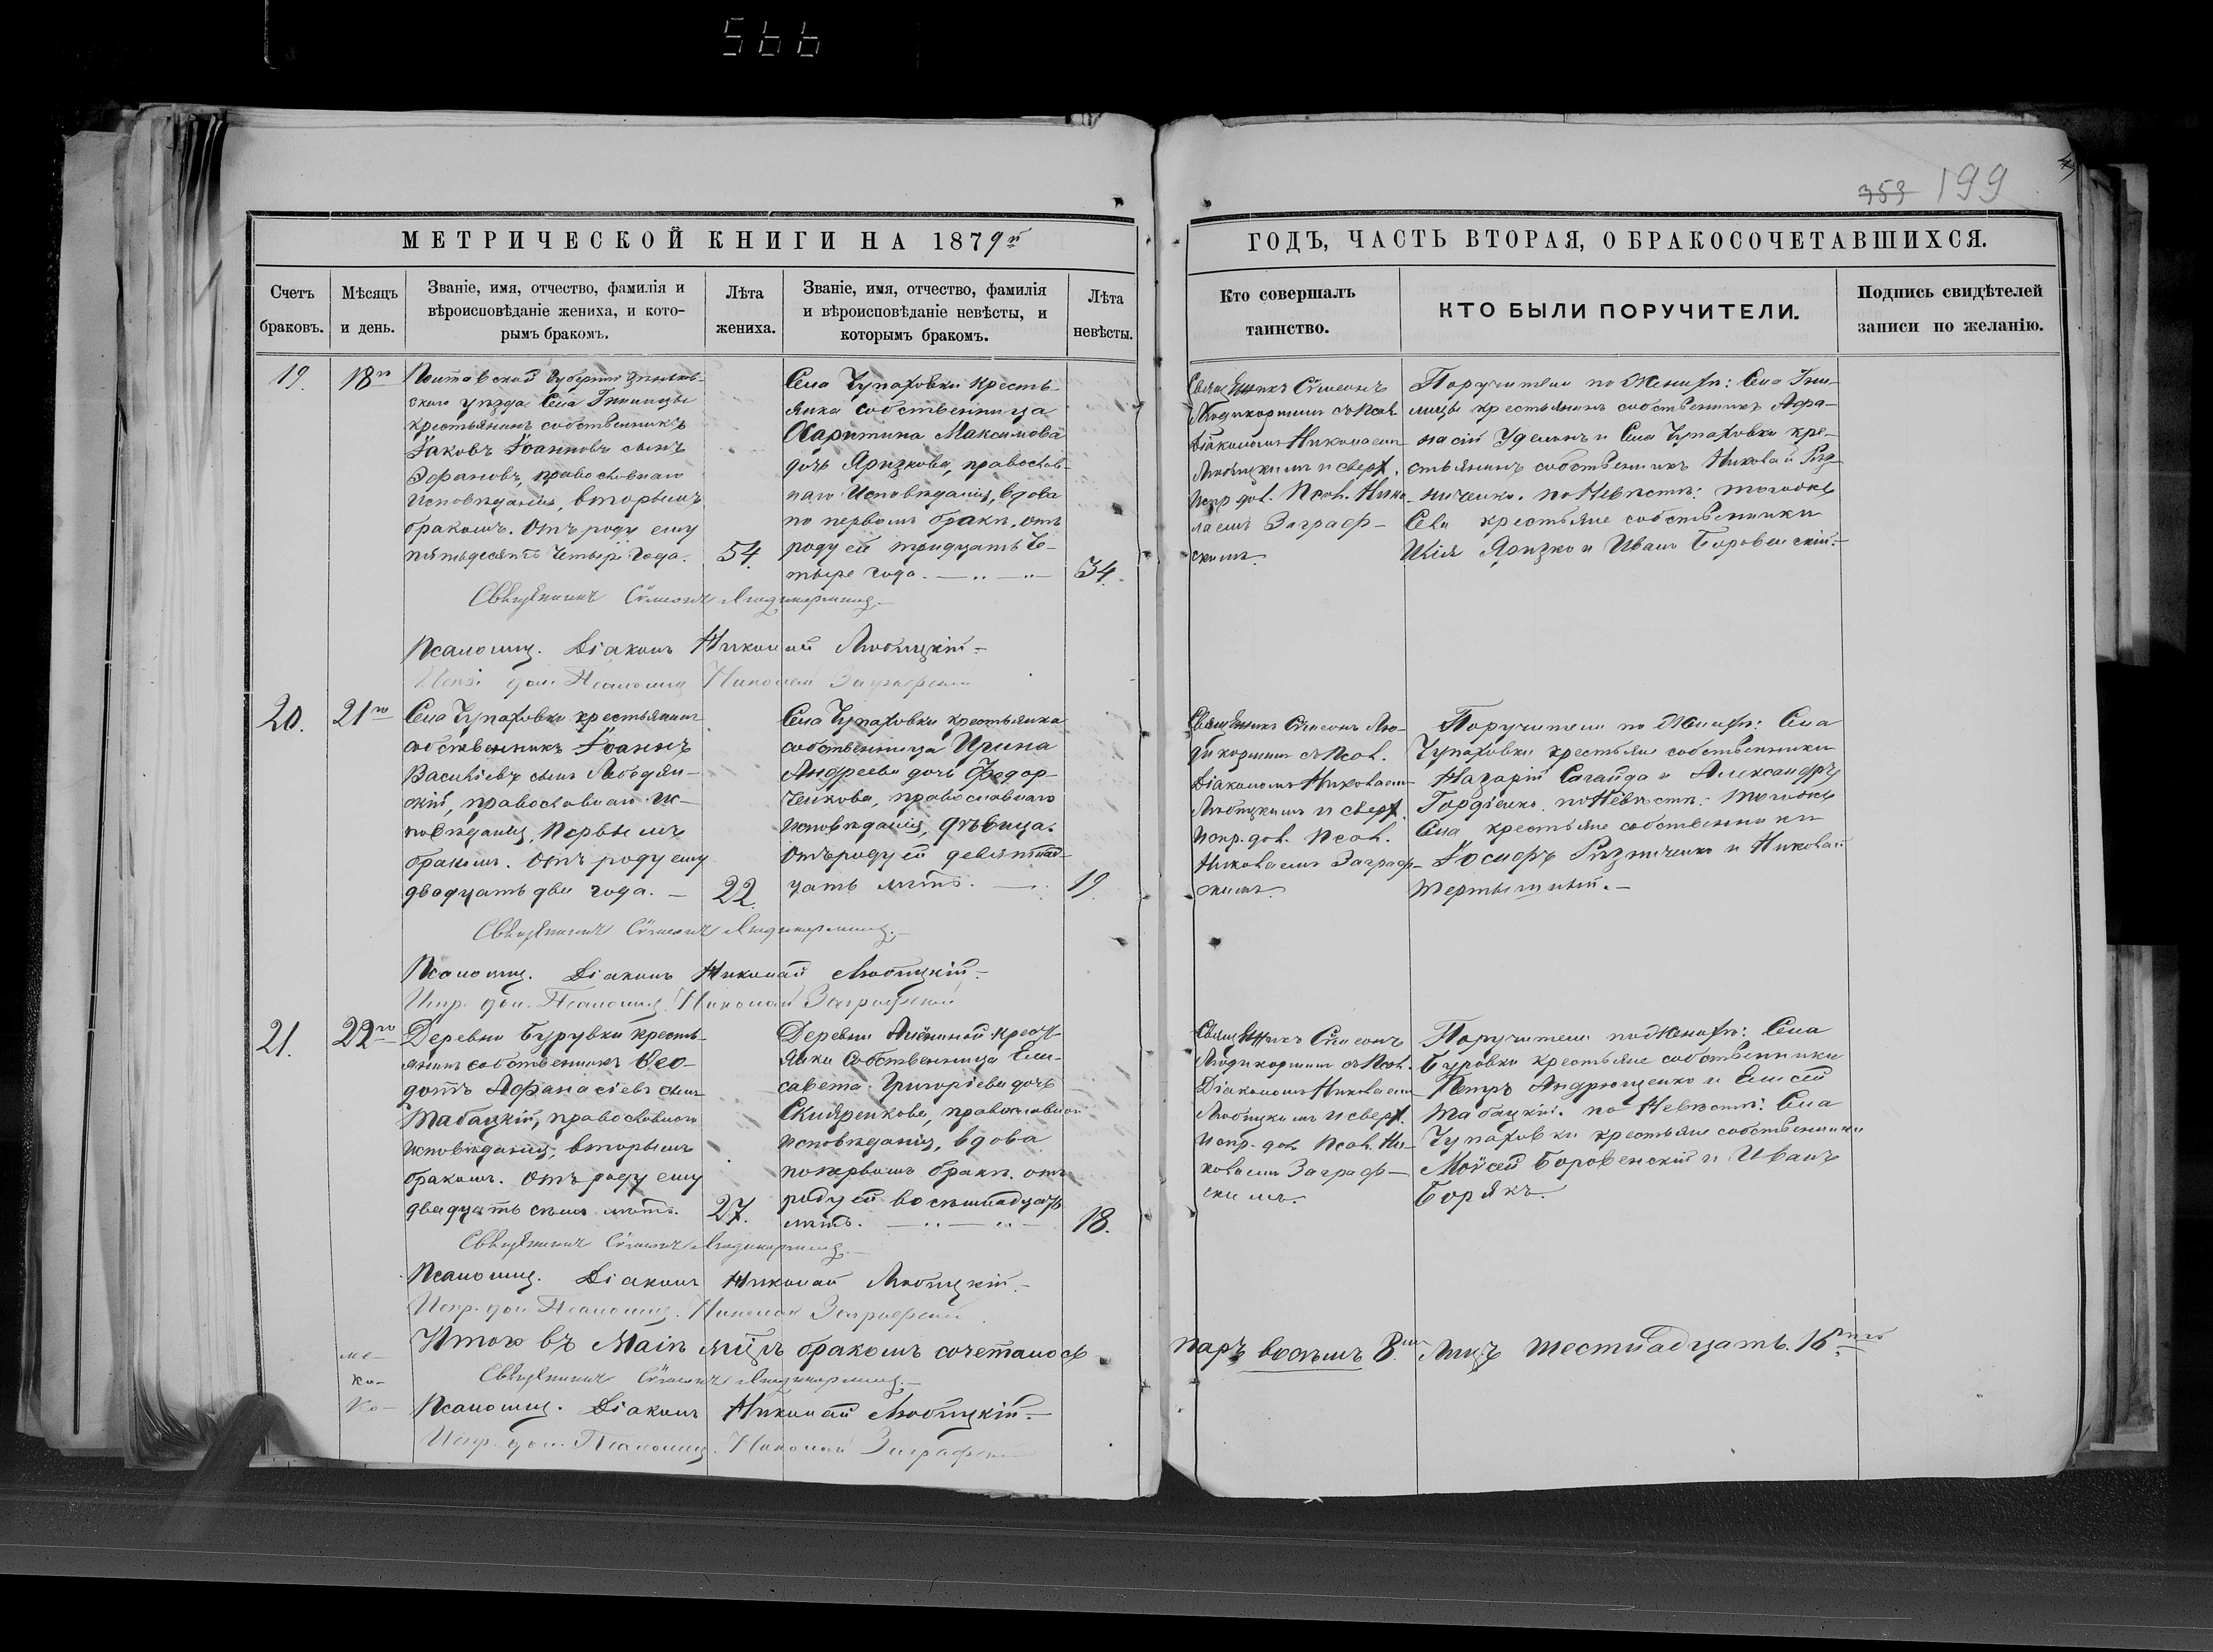 566
353 199
МЕТРИЧЕСКОЙ КНИГИ НА 1879й
ГОДЪ, ЧАСТЬ ВТОРАЯ, О БРАКОСОЧЕТАВШИХСЯ.
Счетъ
браковъ.
Мѣсяцъ
и день.
Званіе, имя, отчество, фамилія и
вѣроисповѣданіе жениха, и кото-
рымъ бракомъ.
Лѣта
жениха.
Званіе, имя, отчество, фамилія
и вѣроисповѣданіе невѣсты, и
которымъ бракомъ.
Лѣта
невѣсты.
Кто совершалъ
таинство.
КТО БЫЛИ ПОРУЧИТЕЛИ.
Подпись свидѣтелей
записи по желанію.
19.
18го
Полтавской Губерніи Зѣньков-
скаго уѣзда Села
крестьянинъ собственникъ
Іаковъ Іоанновъ сынъ
православнаго
Исповѣданія, вторымъ
бракомъ. Отъ роду ему
пятьдесятъ четыре года.
54.
Села Чупаховки кресть-
янка собственница
Харитина Максимова
дочь Ярізкова, православ-
наго Исповѣданія, вдова
по первомъ бракѣ. отъ
роду ей тридцать че-
тыре года.
34.
Священникъ Сѵмеонъ
съ Псал.
Діакономъ Николаемъ
Любицкимъ и сверх.
Испр. дол. Псал. Нико-
лаемъ Заграф-
скимъ.
Поручители по Женихѣ: Села Гли-
ницы крестьянинъ собственникъ Афа-
насій Уделонъ и Села Чупаховки кре-
стьянинъ собственникъ Николай Рѣз-
ниченко. по Невѣстѣ: тогоже
Села крестьяне собственники
Илія Ярізко и Иванъ Боровенскій.
Священникъ Сѵмеонъ
Псаломщ. Діаконъ Николай Любицкій.
Испр. дол. Псаломщ. Николай Заграфскій
20.
21го
Села Чупаховки крестьянинъ
собственникъ Іоаннъ
Василіевъ сынъ Лебедян-
скій, православнаго Ис-
повѣданія, Первымъ
бракомъ. Отъ роду ему
двадцать два года.
22.
Села Чупаховки крестьянка
собственница Ирина
Андреева дочь Федор-
ченкова, православнаго
Исповѣданія, дѣвица.
Отъ роду ей девятнад-
цать лѣтъ.
19.
Священникъ Сѵмеонъ Лю-
съ Псал.
Діакономъ Николаемъ
Любицкимъ и сверх.
Испр. дол. Псал.
Николаемъ Заграф-
скимъ.
Поручители по Женихѣ: Села
Чупаховки крестьяне собственники
Назарій Сагайда и Александръ
Гордіенко. по Невѣстѣ: тогоже
Села крестьяне собственники
Іосифъ Рѣзниченко и Николай
Тертышный.
Священникъ Сѵмеонъ
Псаломщ. Діаконъ Николай Любицкій.
Испр. дол. Псаломщ. Николай Заграфскій
21.
22го
Деревни Буровки кресть-
янинъ собственникъ Ѳео-
дотъ Афанасіевъ сынъ
Табацкій, православнаго
исповѣданія, вторымъ
бракомъ. Отъ роду ему
двадцать семь лѣтъ.
27.
Деревни Алёшиной Крест-
янка Собственница Ели-
савета Григоріева дочь
Скляренкова, православной
исповѣданія, вдова
по первомъ бракѣ. отъ
роду ей восемнадцать
лѣтъ.
18.
Священникъ Сѵмеонъ
съ Псал.
Діакономъ Николаемъ
Любицкимъ и сверх.
Испр. дол. Псал. Ни-
колаемъ Заграф-
скимъ.
Поручители по Женихѣ: Села
Буровки крестьяне собственники
Петръ Андрющенко и Елисей
Табацкій. по Невѣстѣ: Села
Чупаховки крестьяне собственники
Моѵсей Боровенскій и Иванъ
Борякъ.
Священникъ Сѵмеонъ
Псаломщ. Діаконъ Николай Любицкій.
Испр. дол. Псаломщ. Николай Заграфскій
Итого въ Маіѣ м͠цѣ бракомъ сочеталось паръ восемь 8. Лицъ шестнадцать. 16.
Священникъ Сѵмеонъ
Псаломщ. Діаконъ Николай Любицкій.
Испр. дол. Псаломщ. Николай Заграфскій